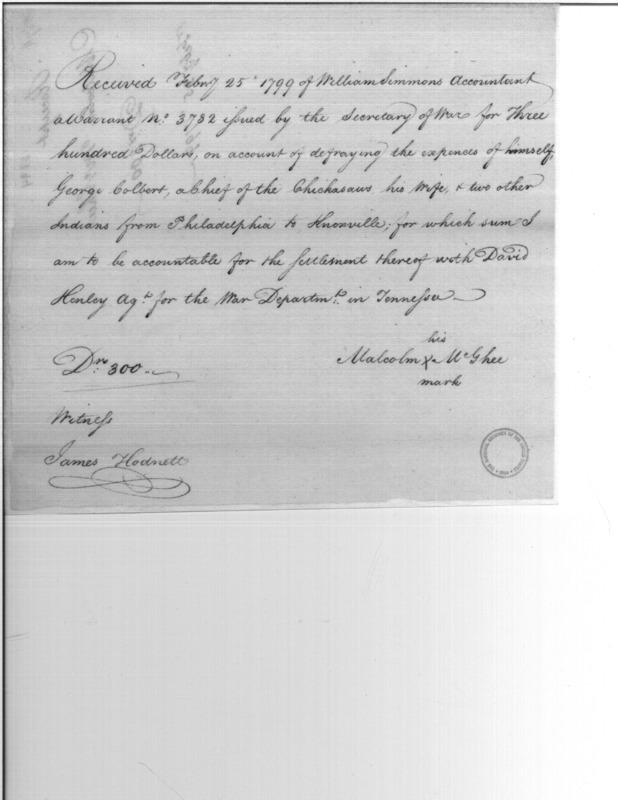 Received Febry 25th 1799 of William Simmons Accountant
a Warrant No. 3732 issued by the Secretary of War for Three
hundred Dollars, on account of defraying the expences of himself,
George Colbert, a Chief of the Chickasaws, his Wife, & two other
Indians from Philadelphia to Knoxville; for which sum I
am to be accountable for the settlement thereof with David
Henley Agt. for the War Departmt. in Tennessee
his
Malcolm X McGhee
mark
Drs. 300..
Witness
James Hodnett